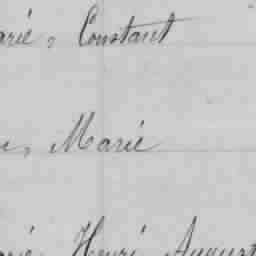 arié, Constant
, Marié
arié, Henri, August